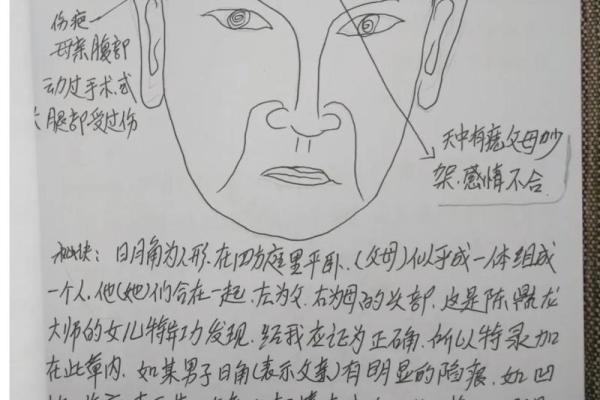 伤疤
母亲腹部
动过手术.或
大腿部受过伤
天中有痣父母吵
架.感情不合
秘诀：日月角为人形.在四方庭里平卧.(父母)似乎成一体组成
一个人.他(她)们合在一起.左为父.右为母的头部.这是陈鼎龙
大师的女儿特异功发现.经我应证为正确.所以特录加
在此章内.如某男子日角(表示父亲)有明显的陷痕.如凹